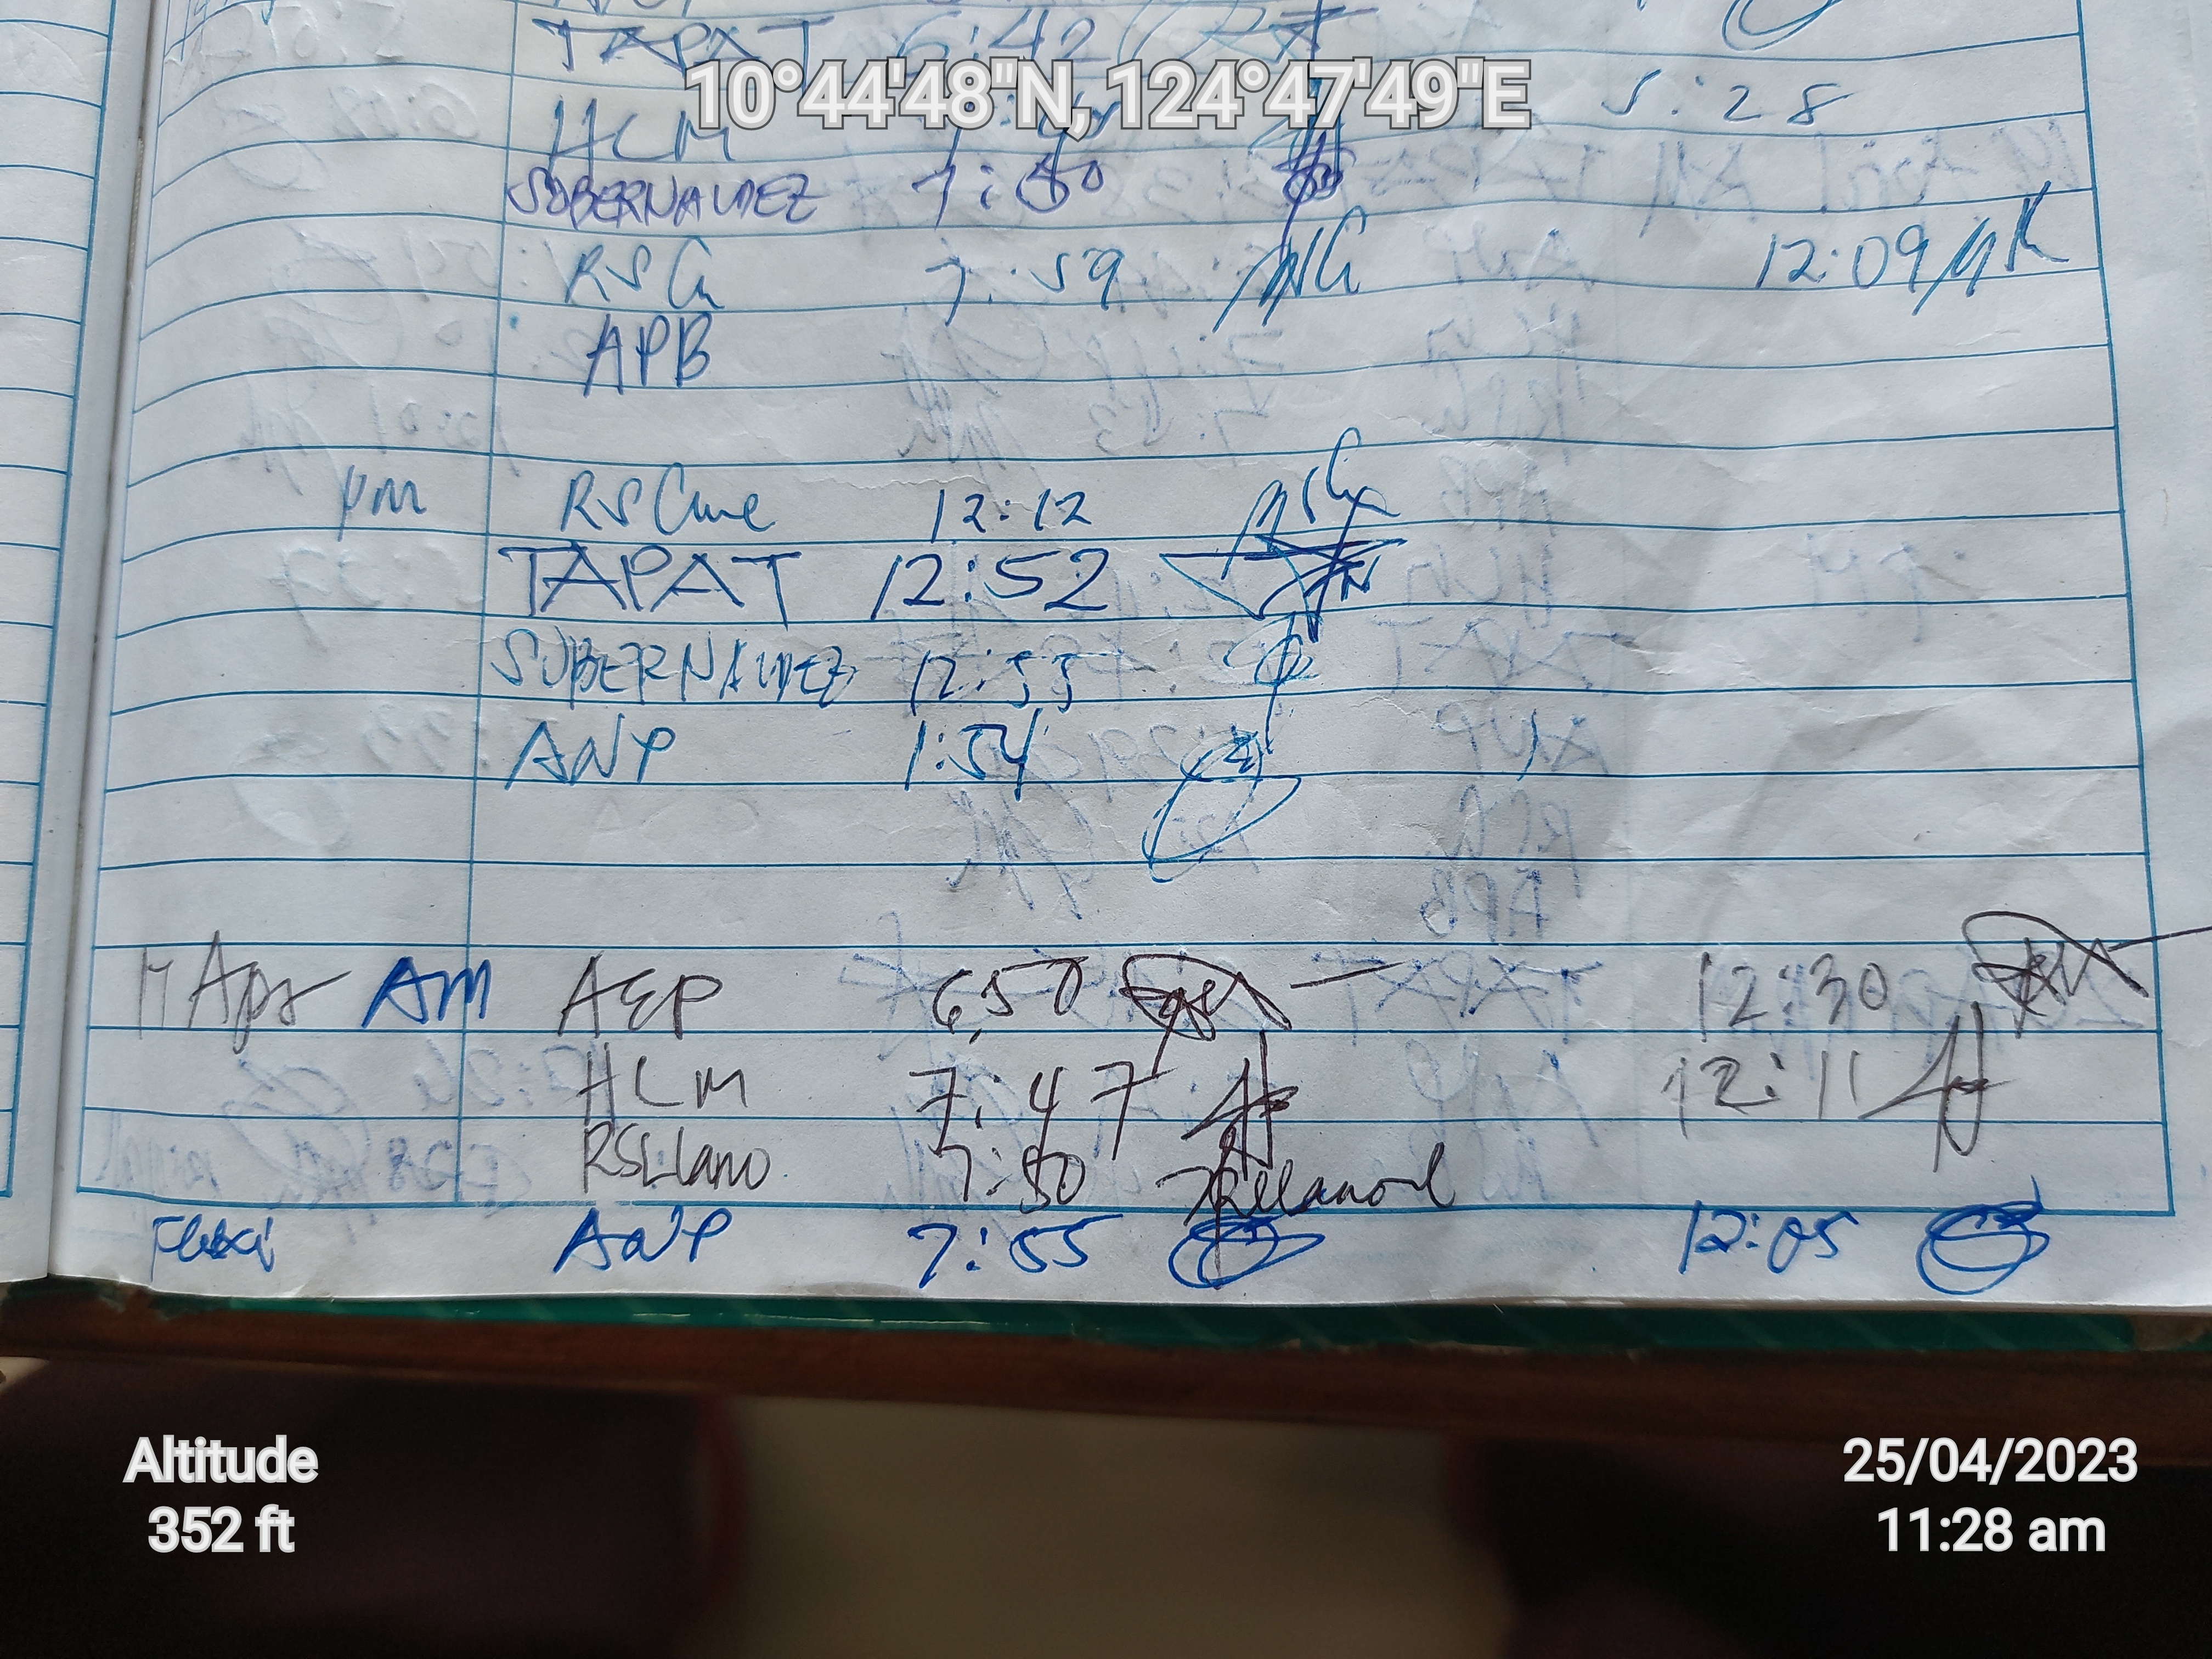 TAPAT 6:42
10°44'48"N, 124°47'49"E
HCM 5:28
SOBERNALDEZ 7:50
RSG 7:59 12:09
APB
pm RSGme 12:12
TAPAT 12:52
SOBERNALDEZ 12:55
ANP 1:54
Apr AM AEP 6:50 12:30
HCM 7:47 12:11
RSLlano 7:50
ANP 7:55 12:05
Altitude
352 ft
25/04/2023
11:28 am